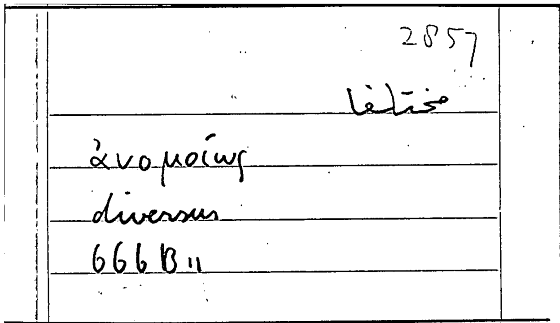 2857
مختلفا
ἀνομοίως
diversus
666 B 11